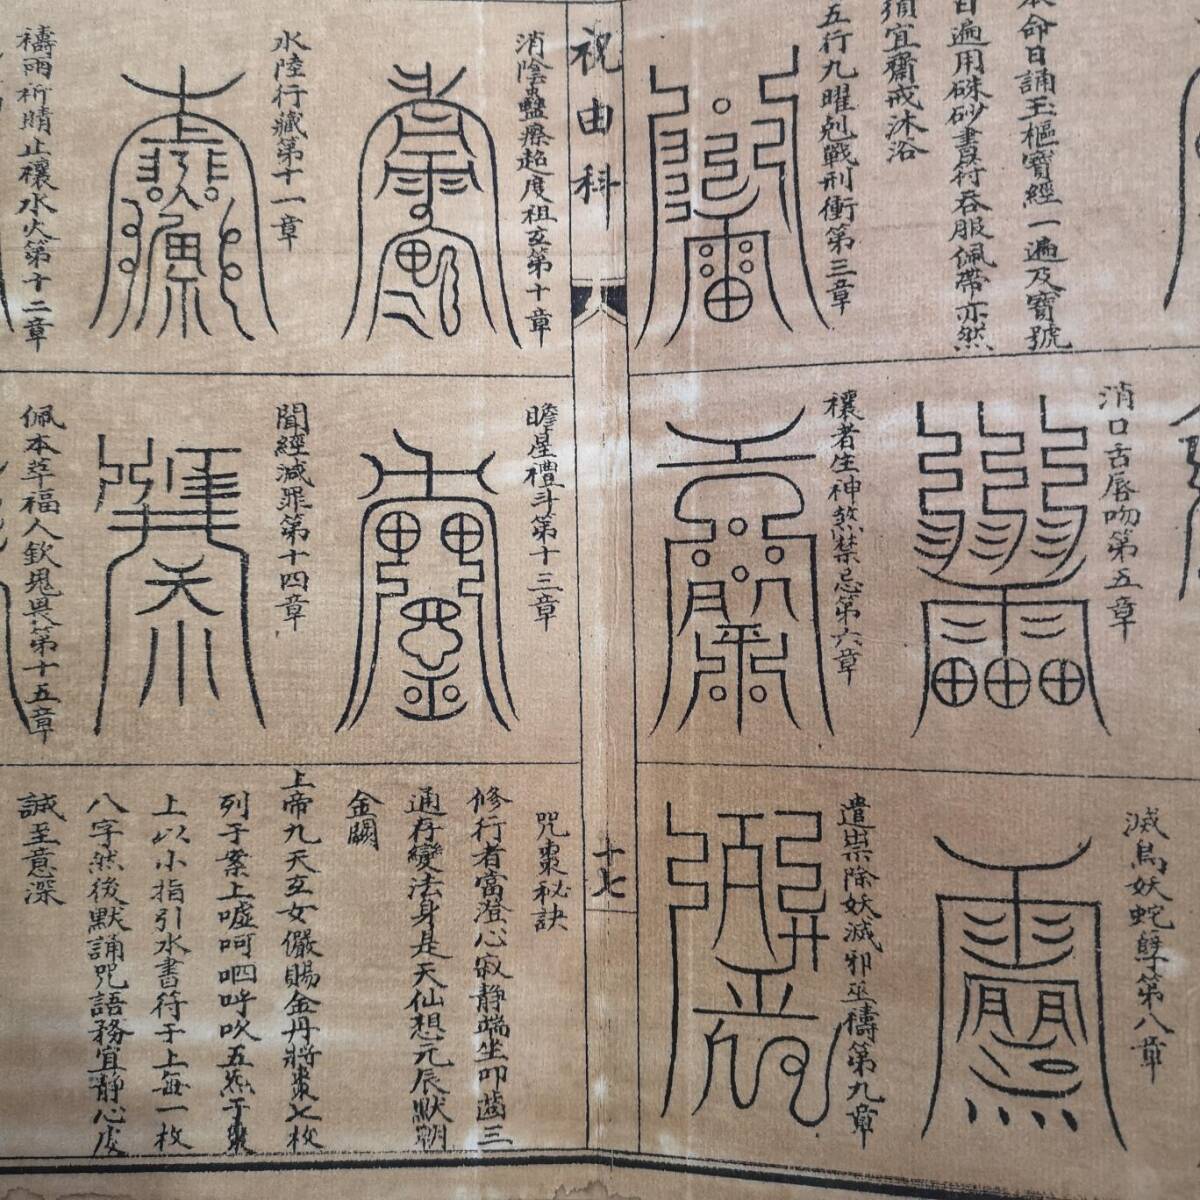 本命日誦玉樞寶經一遍及寶號
百遍用硃砂書符吞服佩帶亦然
須宜齋戒沐浴
五行九曜剋戰刑衝第三章
消口舌唇吻第五章
禳者生神煞禁忌第六章
滅鳥妖蛇孽第八章
遣祟除妖滅邪巫禱第九章
祝由科
十七
消陰蠱療超度祖玄第十章
水陸行藏第十一章
禱雨祈晴止禳水火第十二章
瞻星禮斗第十三章
聞經減罪第十四章
佩本草福人欽鬼畏第十五章
咒棗秘訣
修行者當澄心寂靜端坐叩齒三
通存變法身是天仙想元辰默朝
金闕
上帝九天玄女儼賜金丹將棗七枚
列于案上噓呵呬呼吹五炁于棗
上以小指引水書符于上每一枚
八字然後默誦咒語務宜靜心皮
誠至意深